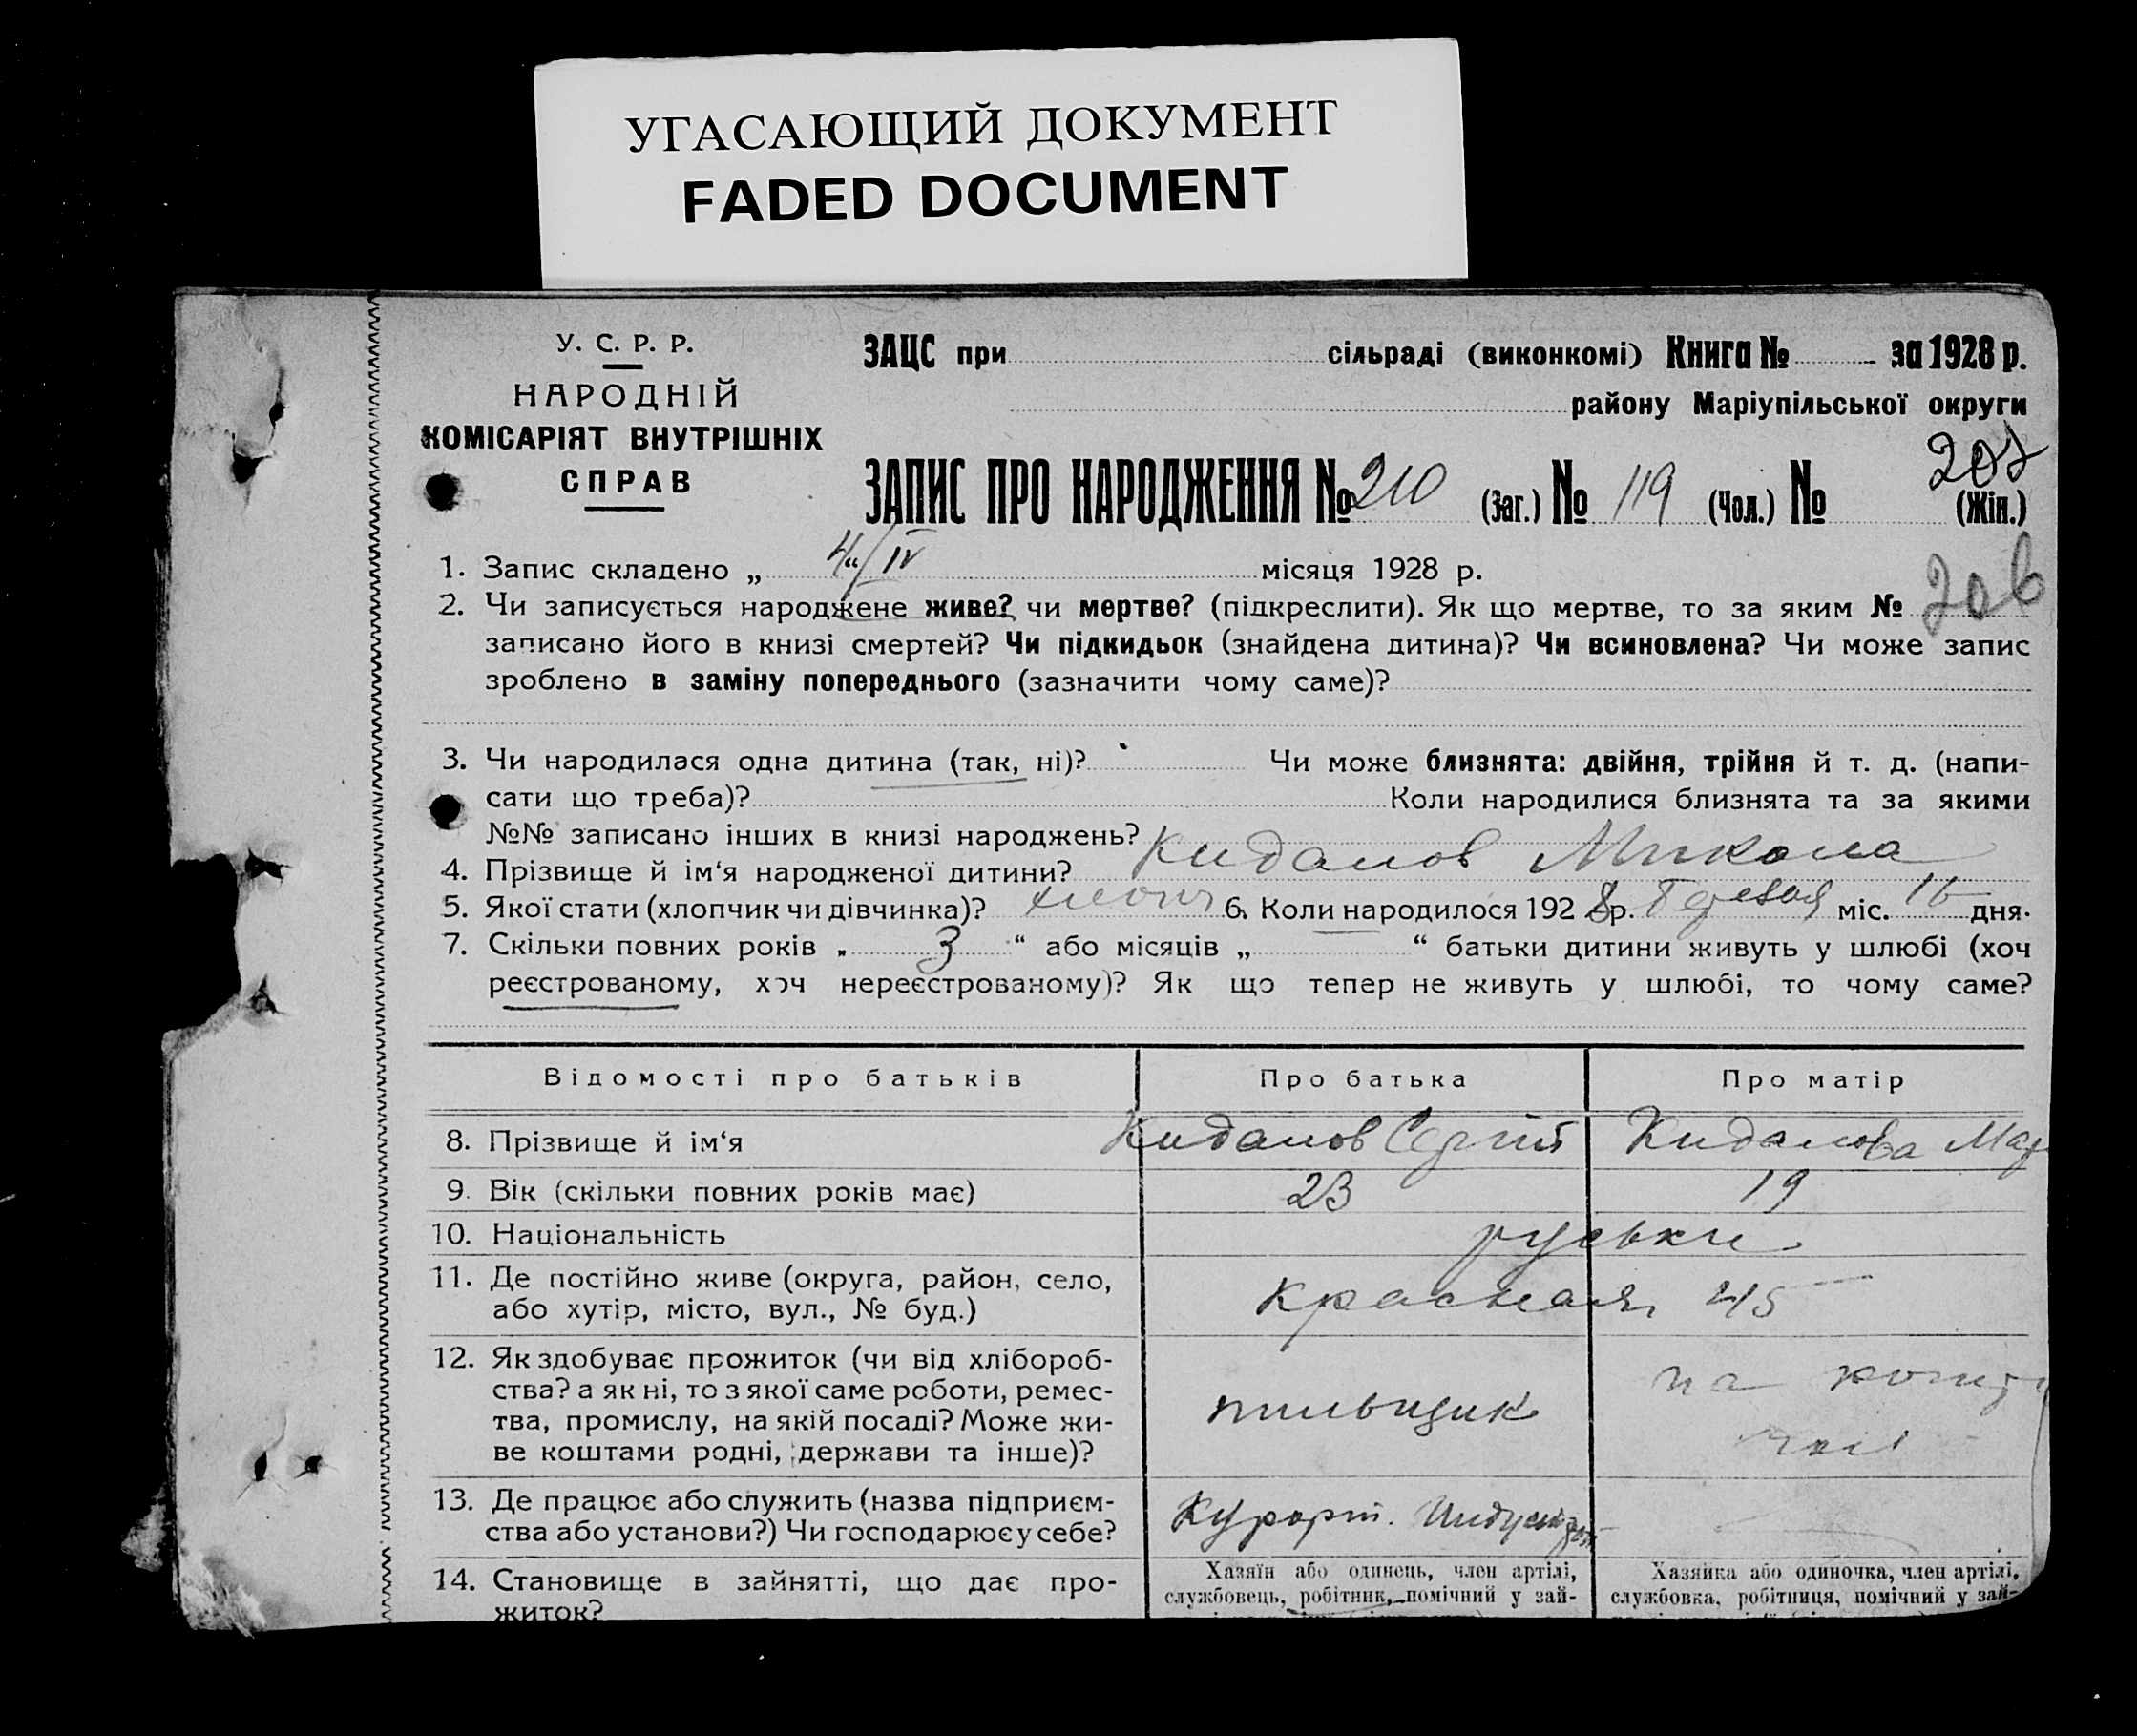 УГАСАЮЩИЙ ДОКУМЕНТ
FADED DOCUMENT
У. С. Р. Р.
НАРОДНІЙ
КОМІСАРІЯТ ВНУТРІШНІХ
СПРАВ
ЗАЦС при сільраді (виконкомі) Книга № за 1928 р.
району Маріупільської округи
ЗАПИС ПРО НАРОДЖЕННЯ № 210 (Заг.) № 119 (Чол.) № (Жін.)
1. Запис складено „ 4 “ / IV місяця 1928 р.
206
2. Чи записується народжене живе? чи мертве? (підкреслити). Як що мертве, то за яким №
записано його в книзі смертей? Чи підкидьок (знайдена дитина)? Чи всиновлена? Чи може запис
зроблено в заміну попереднього (зазначити чому саме)?
3. Чи народилася одна дитина (так, ні)? Чи може близнята: двійня, трійня й т. д. (напи-
сати що треба)? Коли народилися близнята та за якими
№№ записано інших в книзі народжень?
4. Прізвище й ім‘я народженої дитини? Киданов Микола
5. Якої стати (хлопчик чи дівчинка)? хлопч 6. Коли народилося 1928 р. березня міс. 16 дня.
7. Скільки повних років „ 3 “ або місяців „ “ батьки дитини живуть у шлюбі (хоч
реєстрованому, хоч нереєстрованому)? Як що тепер не живуть у шлюбі, то чому саме?
Відомості про батьків Про батька Про матір
8. Прізвище й ім‘я Киданов Сергій Киданова Мар
9. Вік (скільки повних років має) 23 19
10. Національність руськи
11. Де постійно живе (округа, район, село,
або хутір, місто, вул., № буд.) Красная 45
12. Як здобуває прожиток (чи від хлібороб-
ства? а як ні, то з якої саме роботи, ремес-
тва, промислу, на якій посаді? Може жи-
ве коштами родні, держави та інше)? пильщик на
13. Де працює або служить (назва підприєм-
ства або установи?) Чи господарює у себе? Курорт.
14. Становище в зайнятті, що дає про-
житок?
Хазяїн або одинець, член артілі,
службовець, робітник, помічний у зай-
Хазяйка або одиночка, член артілі,
службовка, робітниця, помічний у зай-